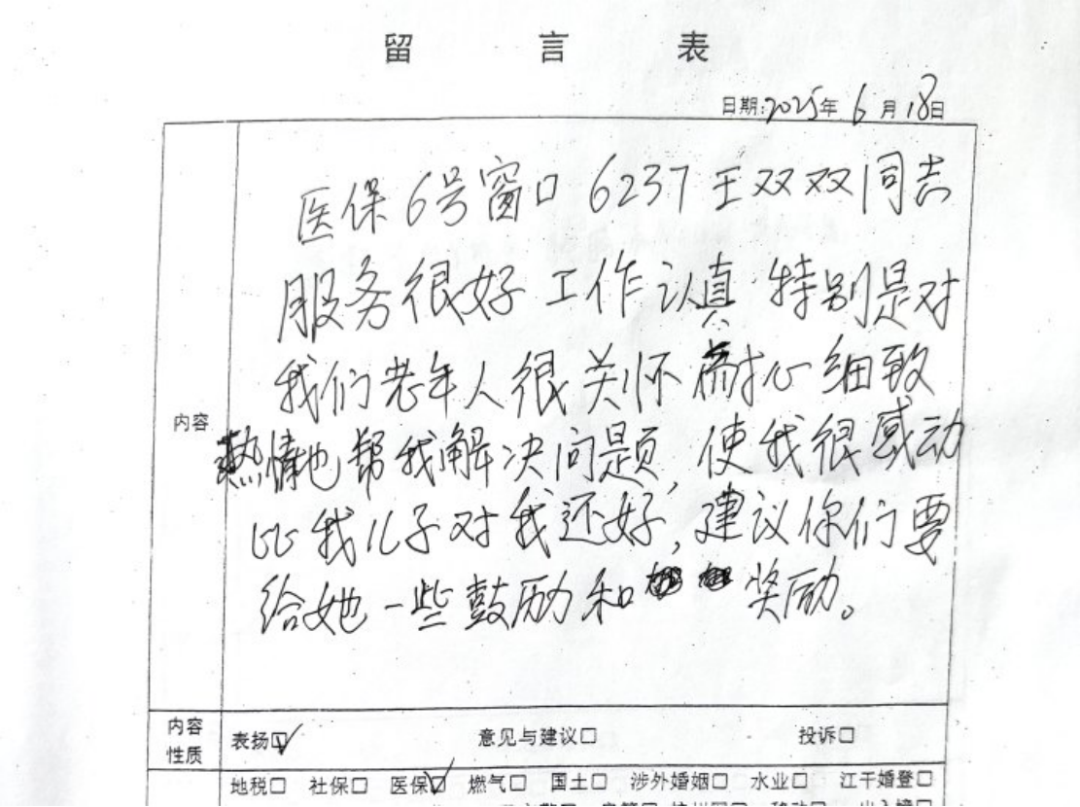 留言表
日期:2025年6月18日
内容
医保6号窗口6237王双双同志
服务很好 工作认真 特别是对
我们老年人很关怀 耐心细致
热情地帮我解决问题,使我很感动
比我儿子对我还好,建议你们要
给她一些鼓励和奖励。
内容性质
表扬☑ 意见与建议□ 投诉□
地税□ 社保□ 医保☑ 燃气□ 国土□ 涉外婚姻□ 水业□ 江干婚登□